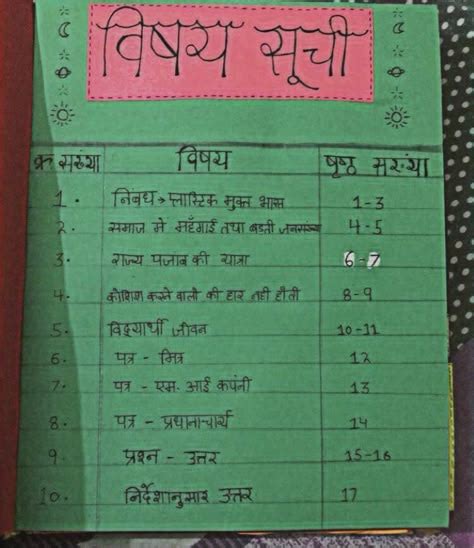 विषय सूची
क्र सख्या विषय पृष्ठ सख्या
1. निबंध → प्लास्टिक मुक्त भारत 1-3
2. समाज मे महँगाई तथा बढती जनसख्या 4-5
3. राज्य पजाब की यात्रा 6-7
4. कोशिश करने वालो की हार नही होती 8-9
5. विद्यार्थी जीवन 10-11
6. पत्र - मित्र 12
7. पत्र - एम. आई कंपनी 13
8. पत्र - प्रधानाचार्य 14
9. प्रश्न - उत्तर 15-16
10. निर्देशानुसार उत्तर 17